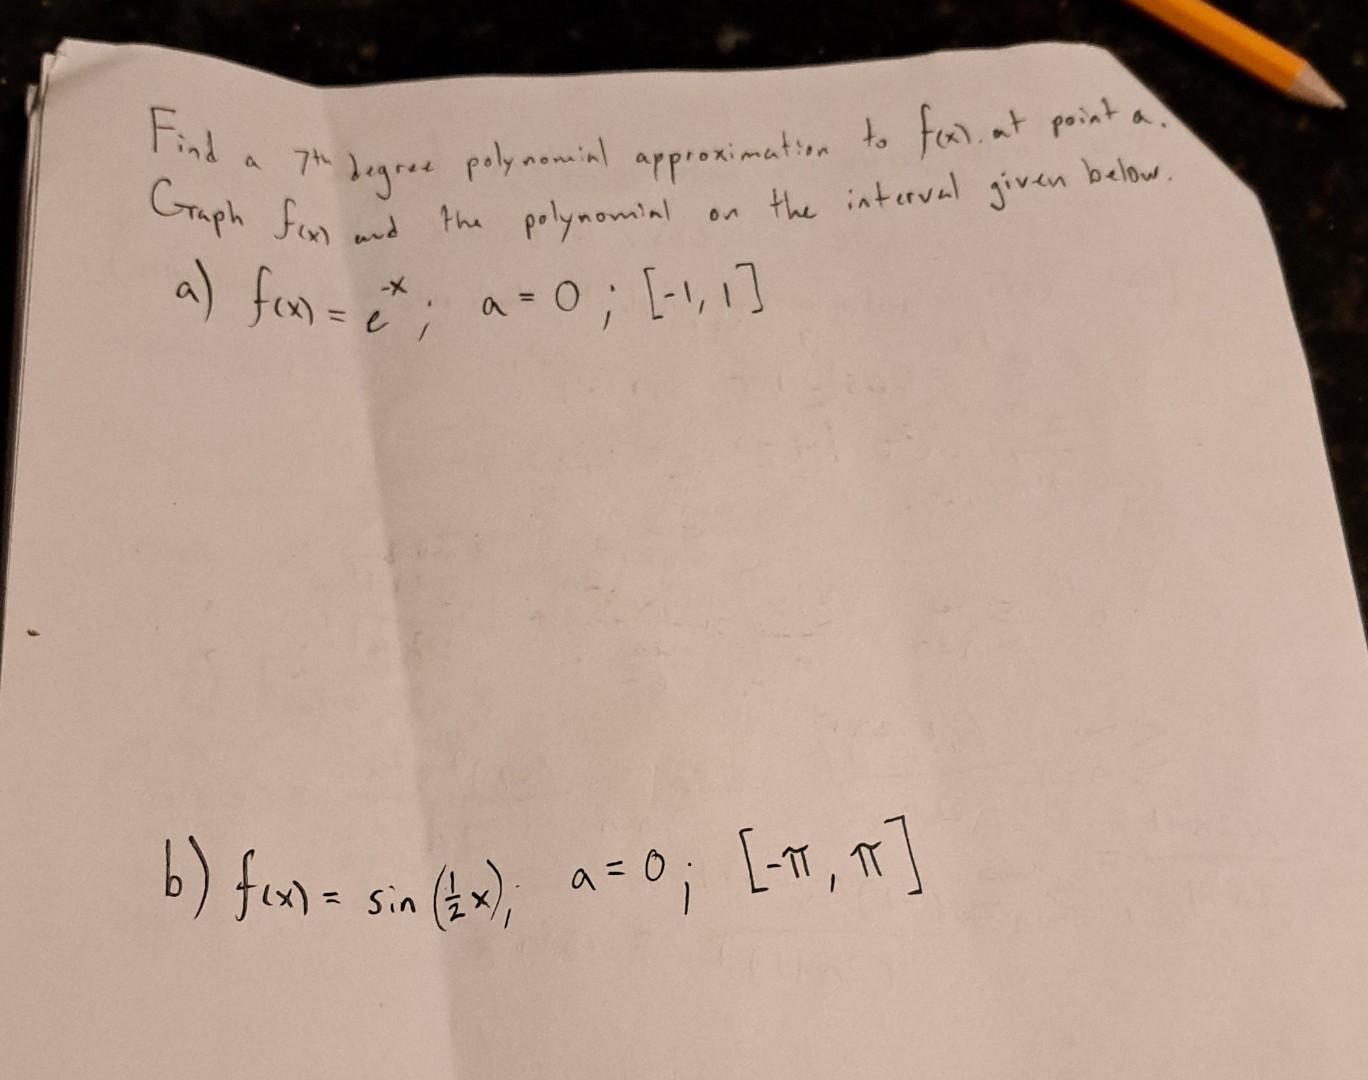 Find a 7th degree polynomial approximation to f(x). at point a.
Graph f(x) and the polynomial on the interval given below.
a) f(x) = e^-x; a = 0; [-1, 1]
b) f(x) = sin(1/2 x); a = 0; [-π, π]